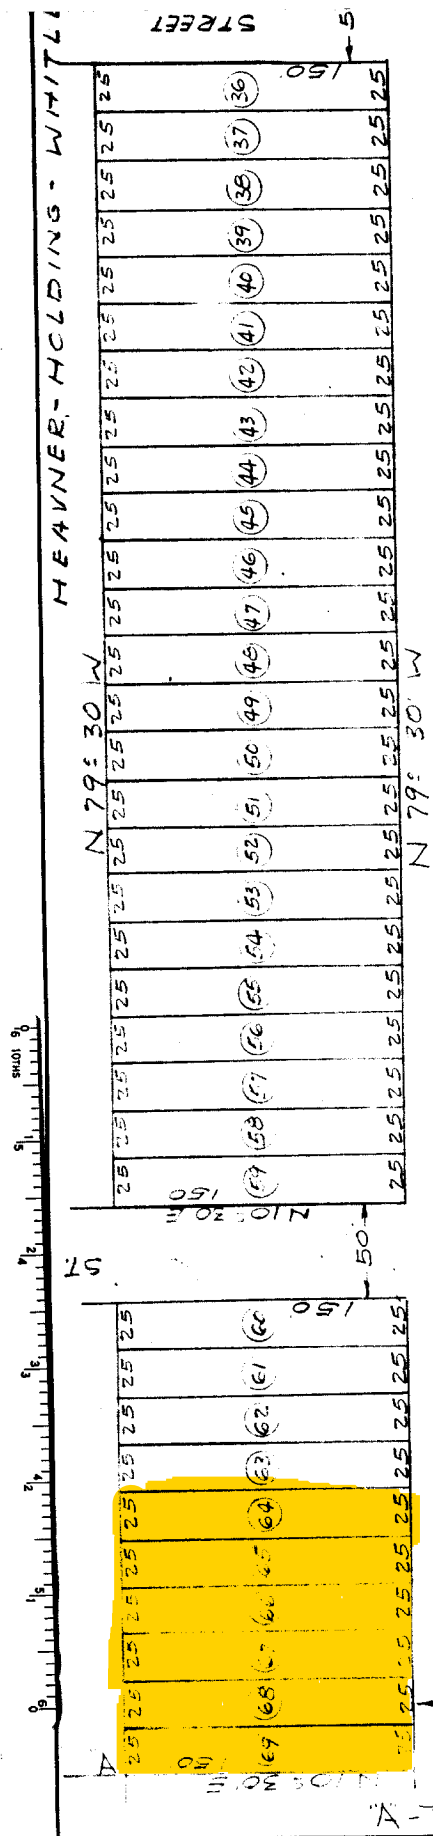 STREET
5
HEAVNER - HOLDING - WHITL
150
25 36 25
25 37 25
25 38 25
25 39 25
25 40 25
25 41 25
25 42 25
25 43 25
25 44 25
25 45 25
25 46 25
25 47 25
25 48 25
25 49 25
25 50 25
25 51 25
25 52 25
25 53 25
25 54 25
25 55 25
25 56 25
25 57 25
25 58 25
25 59 25
N 79° 30' W
N 79° 30' W
150
N 10° 30' E
ST.
50
150
25 60 25
25 61 25
25 62 25
25 63 25
25 64 25
25 65 25
25 66 25
25 67 25
25 68 25
25 69 25
150
N 10° 30' E
A
10THS
0 6
1 5
2 4
3 3
4 2
5 1
6 0